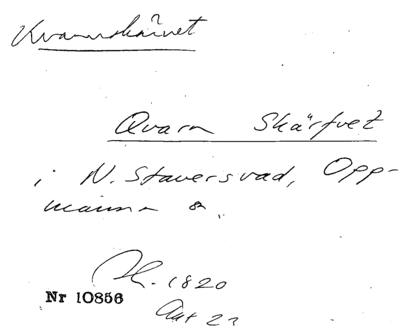 Kvarnskärvet
Qvarn Skärfvet
i N. Staversvad, Opp-
manna s.
1820
Nr 10856
Akt 22